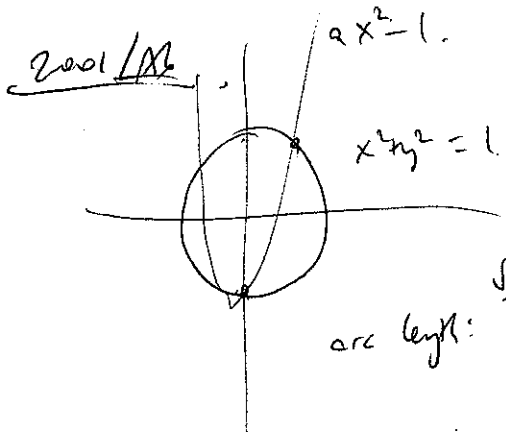 2001/A6
ax² - 1.
x² + y² = 1.
arc length: